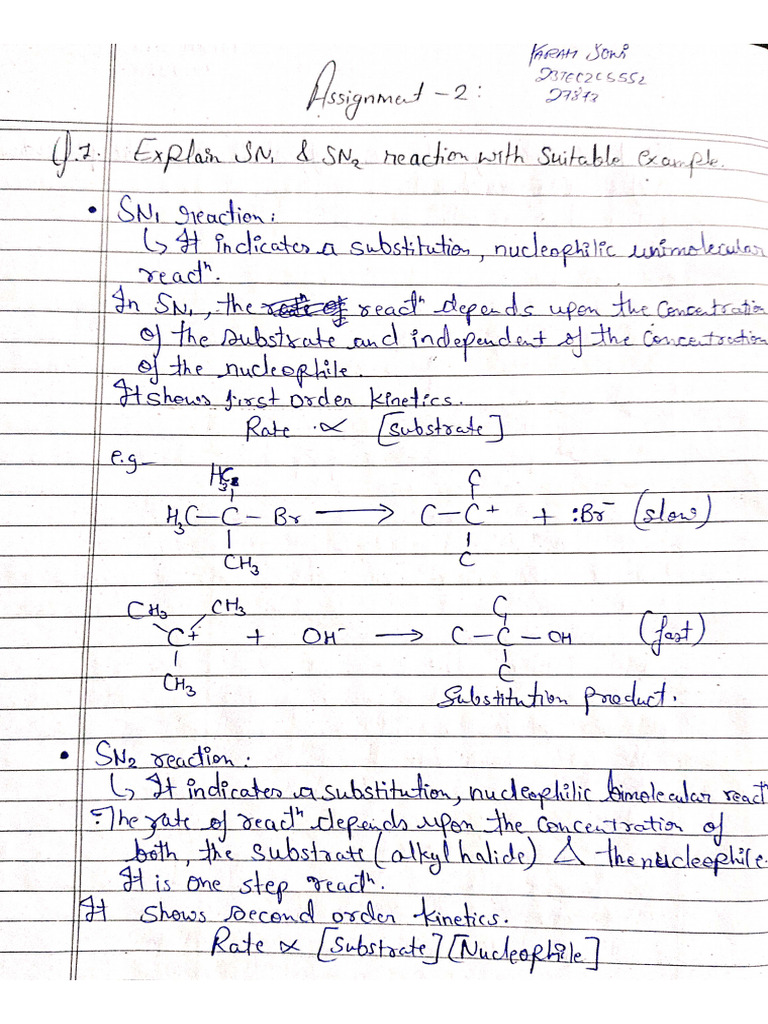 Assignment - 2:
Q.1. Explain SN1 & SN2 reaction with suitable example.
• SN1 reaction:
↳ It indicates a substitution, nucleophilic unimolecular
reactⁿ.
In SN1, the reactⁿ depends upon the concentration
of the substrate and independent of the concentration
of the nucleophile.
It shows first order kinetics.
Rate ∝ [substrate]
e.g-
H3C
H3C-C-Br ⟶ C-C+ + :Br⁻ (slow)
CH3
C
CH3 CH3
C+ + OH⁻ ⟶ C-C-OH (fast)
CH3
C
Substitution product.
• SN2 reaction:
↳ It indicates a substitution, nucleophilic bimolecular react
The rate of reactⁿ depends upon the concentration of
both, the substrate (alkyl halide) & the nucleophile.
It is one step reactⁿ.
It shows second order kinetics.
Rate ∝ [substrate][Nucleophile]